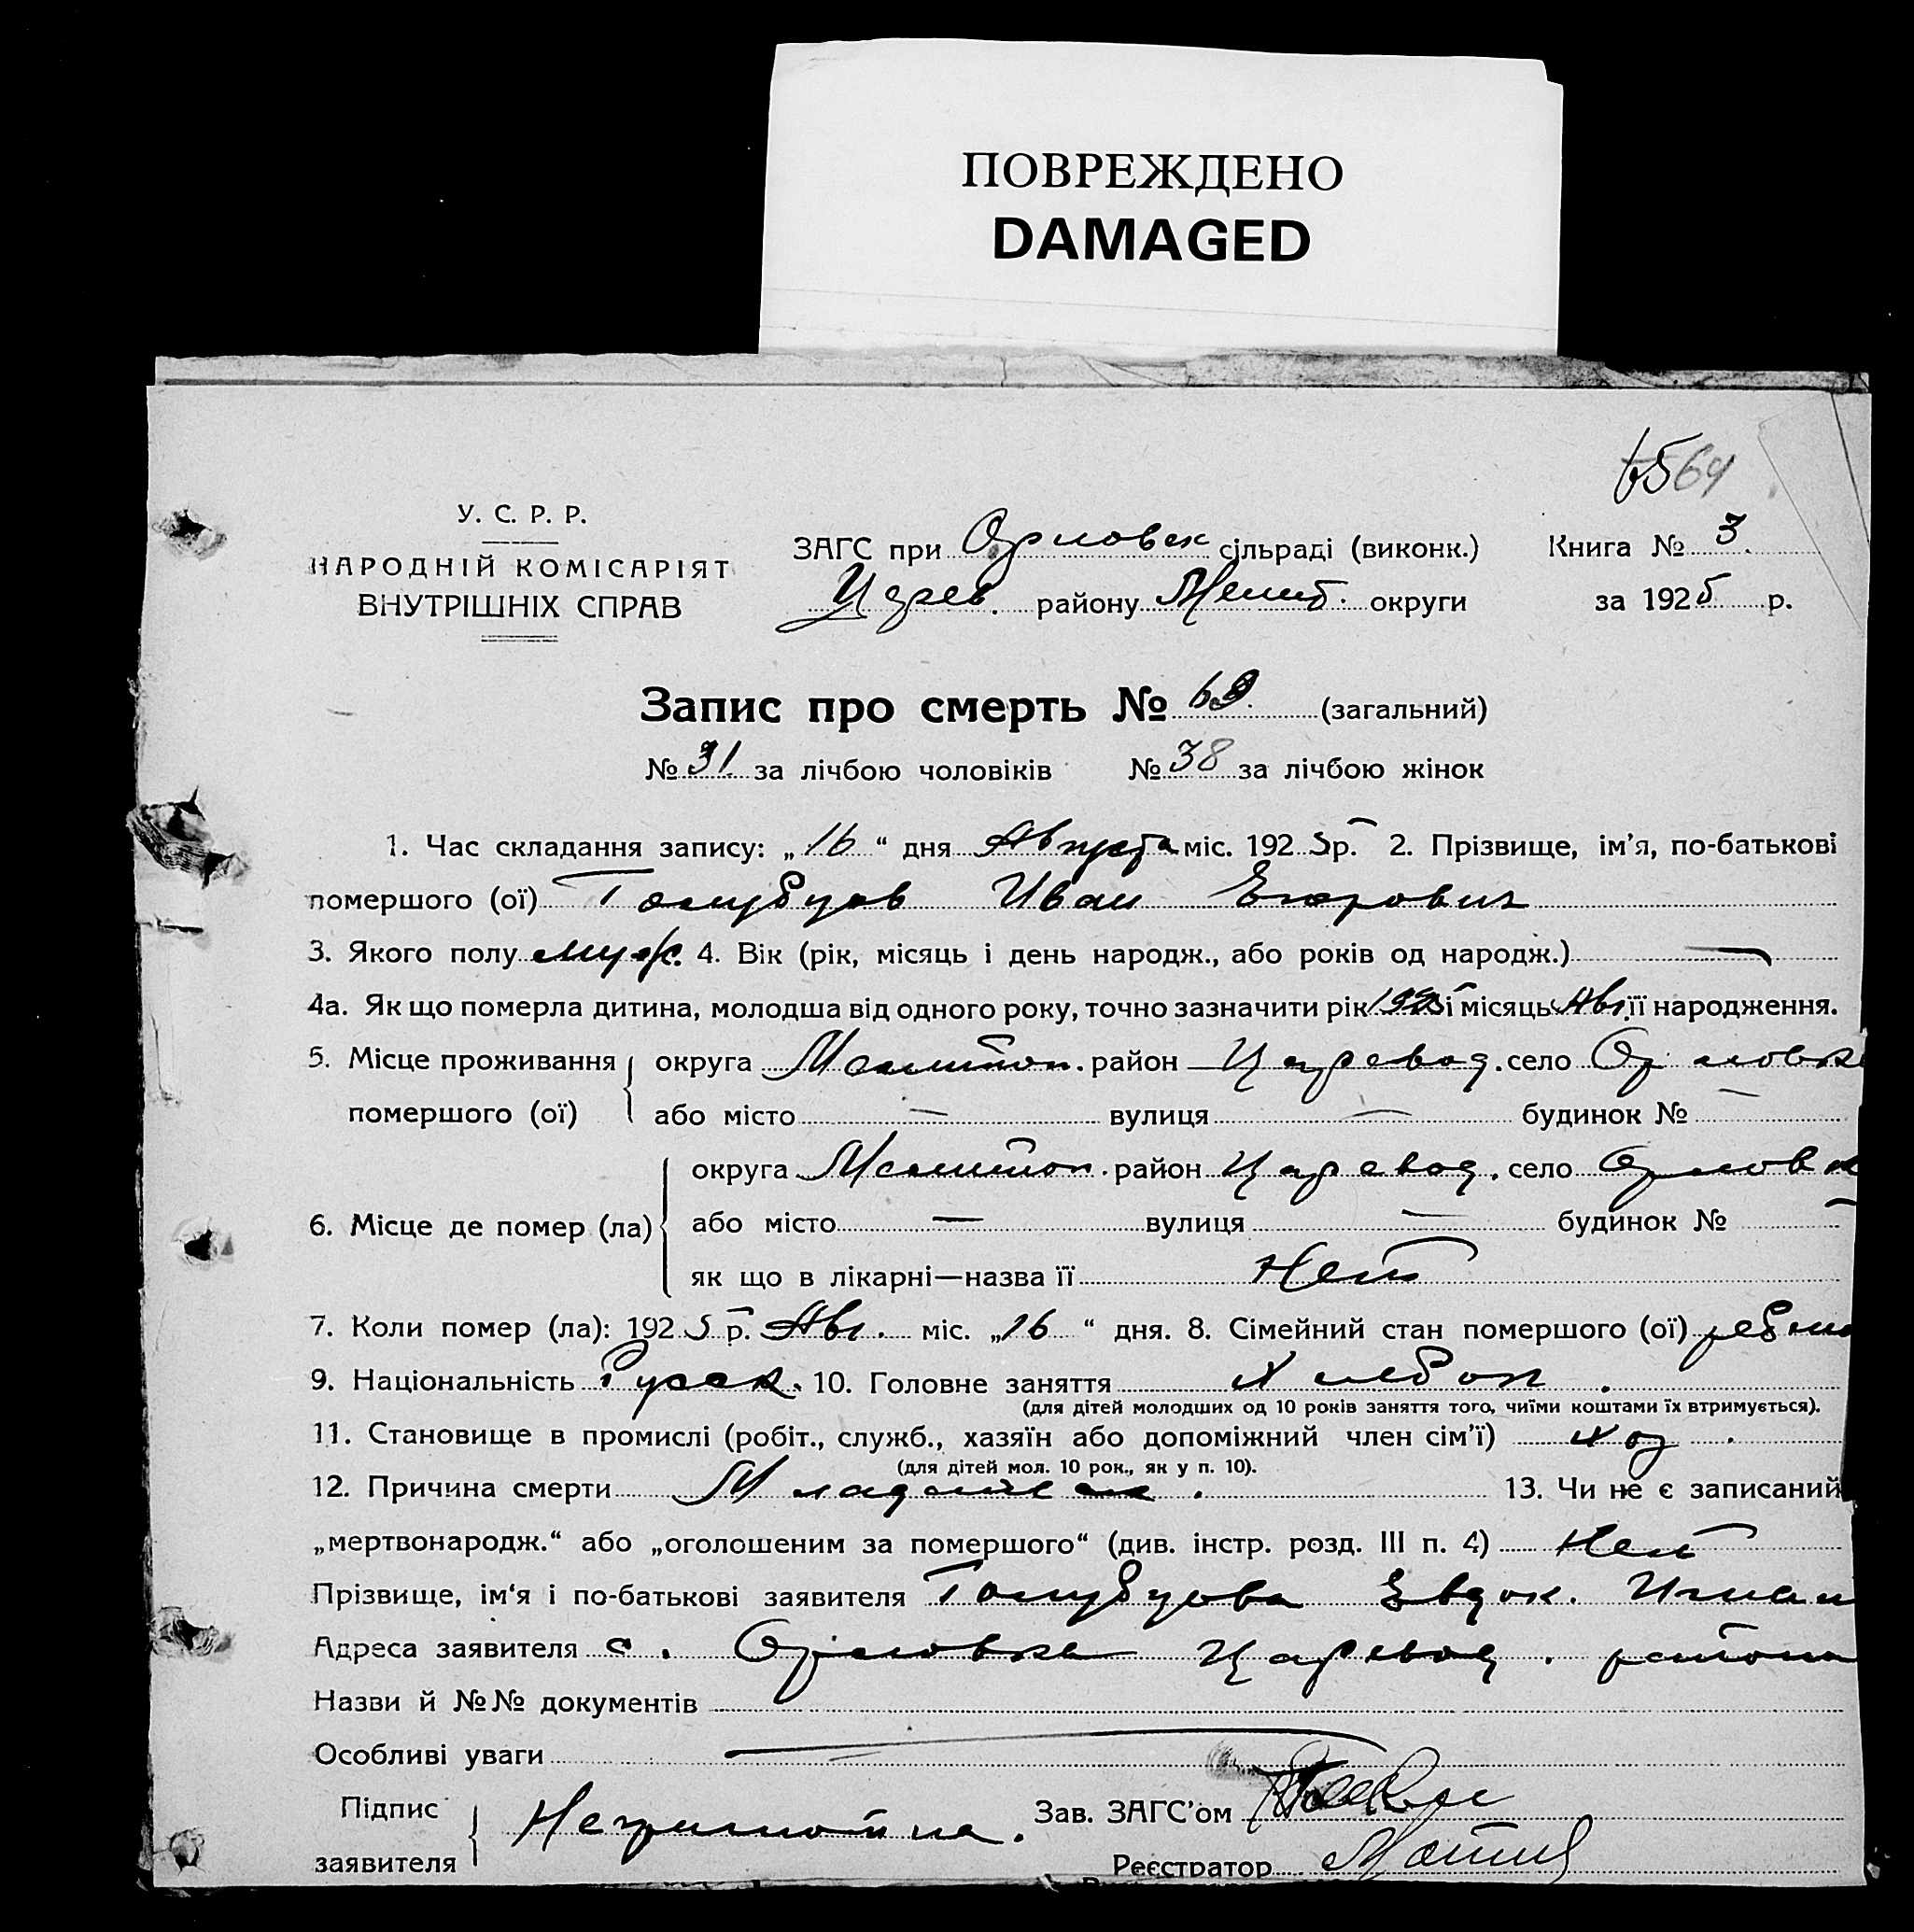 ПОВРЕЖДЕНО
DAMAGED
65 64
У. С. Р. Р.
НАРОДНІЙ КОМІСАРІЯТ
ВНУТРІШНІХ СПРАВ
ЗАГС при Орловск сільраді (виконк.) Книга № 3
Царев. району Мелит. округи за 1925 р.
Запис про смерть № 69. (загальний)
№ 31 за лічбою чоловіків № 38 за лічбою жінок
1. Час складання запису: „16“ дня Августа міс. 1925 р. 2. Прізвище, ім’я, по-батькові
помершого (ої) Голубцов Иван Егорович
3. Якого полу муж. 4. Вік (рік, місяць і день народж., або років од народж.) —
4а. Як що померла дитина, молодша від одного року, точно зазначити рік 1925 і місяць Авг. її народження.
5. Місце проживання округа Мелитоп. район Царевод. село Орловка
помершого (ої) або місто — вулиця — будинок № —
округа Мелитоп. район Царевод. село Орловк
6. Місце де помер (ла) або місто — вулиця — будинок № —
як що в лікарні—назва її Нет
7. Коли помер (ла): 1925 р. Авг. міс. „16“ дня. 8. Сімейний стан помершого (ої)
9. Національність Русск. 10. Головне заняття Хлебоп.
(для дітей молодших од 10 років заняття того, чиїми коштами їх втримується).
11. Становище в промислі (робіт., служб., хазяїн або допоміжний член сім’ї) хоз.
(для дітей мол. 10 рок., як у п. 10).
12. Причина смерти 13. Чи не є записаний
„мертвонародж.“ або „оголошеним за помершого“ (див. інстр. розд. III п. 4) Нет
Прізвище, ім‘я і по-батькові заявителя Голубцова Евдок. Игнат
Адреса заявителя с. Орловка Царевод. района
Назви й №№ документів
Особливі уваги —
Підпис
заявителя Неграмотна.
Зав. ЗАГС’ом
Реєстратор